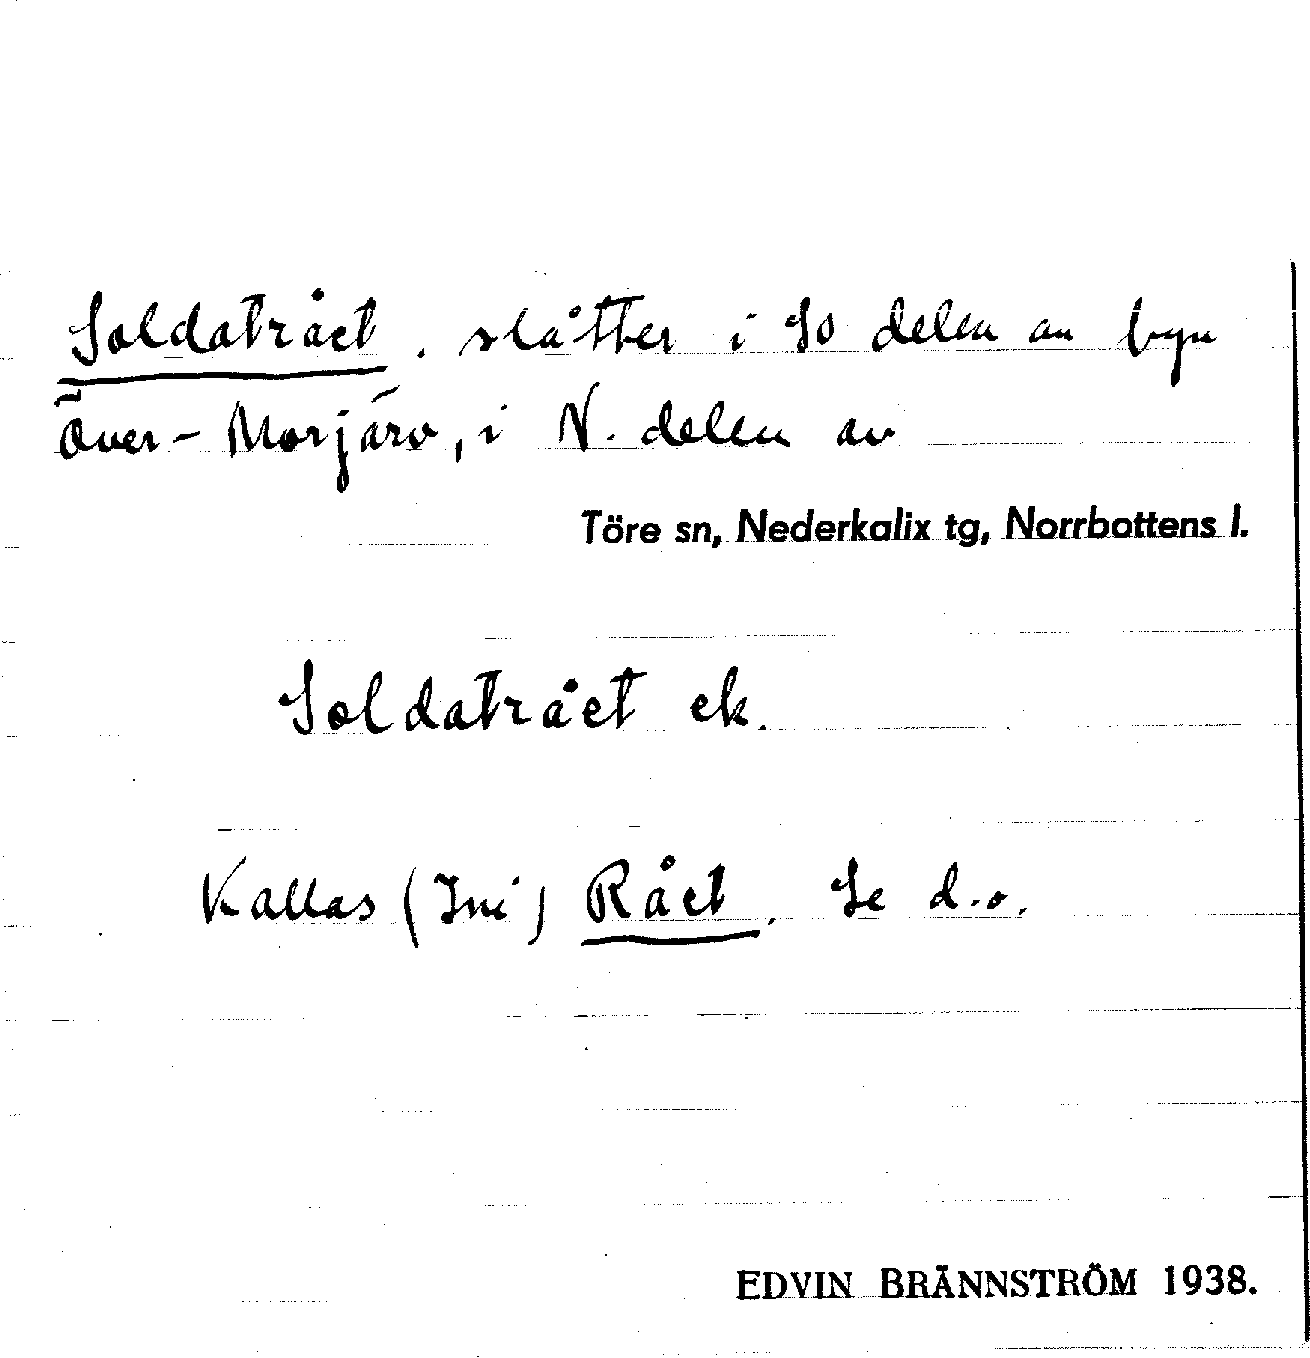 Soldatrået, slåtter i So delen av byn
Över-Morjärv, i N. delen av
Töre sn, Nederkalix tg, Norrbottens l.
Soldatrået ek.
Kallas (Ini) Rået. Se d.o.
EDVIN BRÄNNSTRÖM 1938.